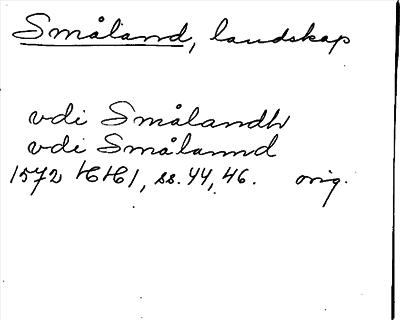 Småland, landskap
vdi Smålandh
vdi Smålannd
1572 HH1, ss. 44, 46. orig.